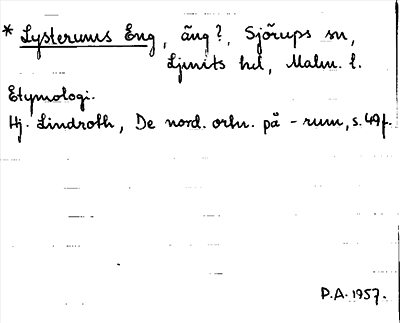 * Lysterums Eng, äng?, Sjörups sn,
Ljunits hd, Malm. l.
Etymologi.
Hj. Lindroth, De nord. ortn. på -rum, s. 49f.
P.A. 1957.